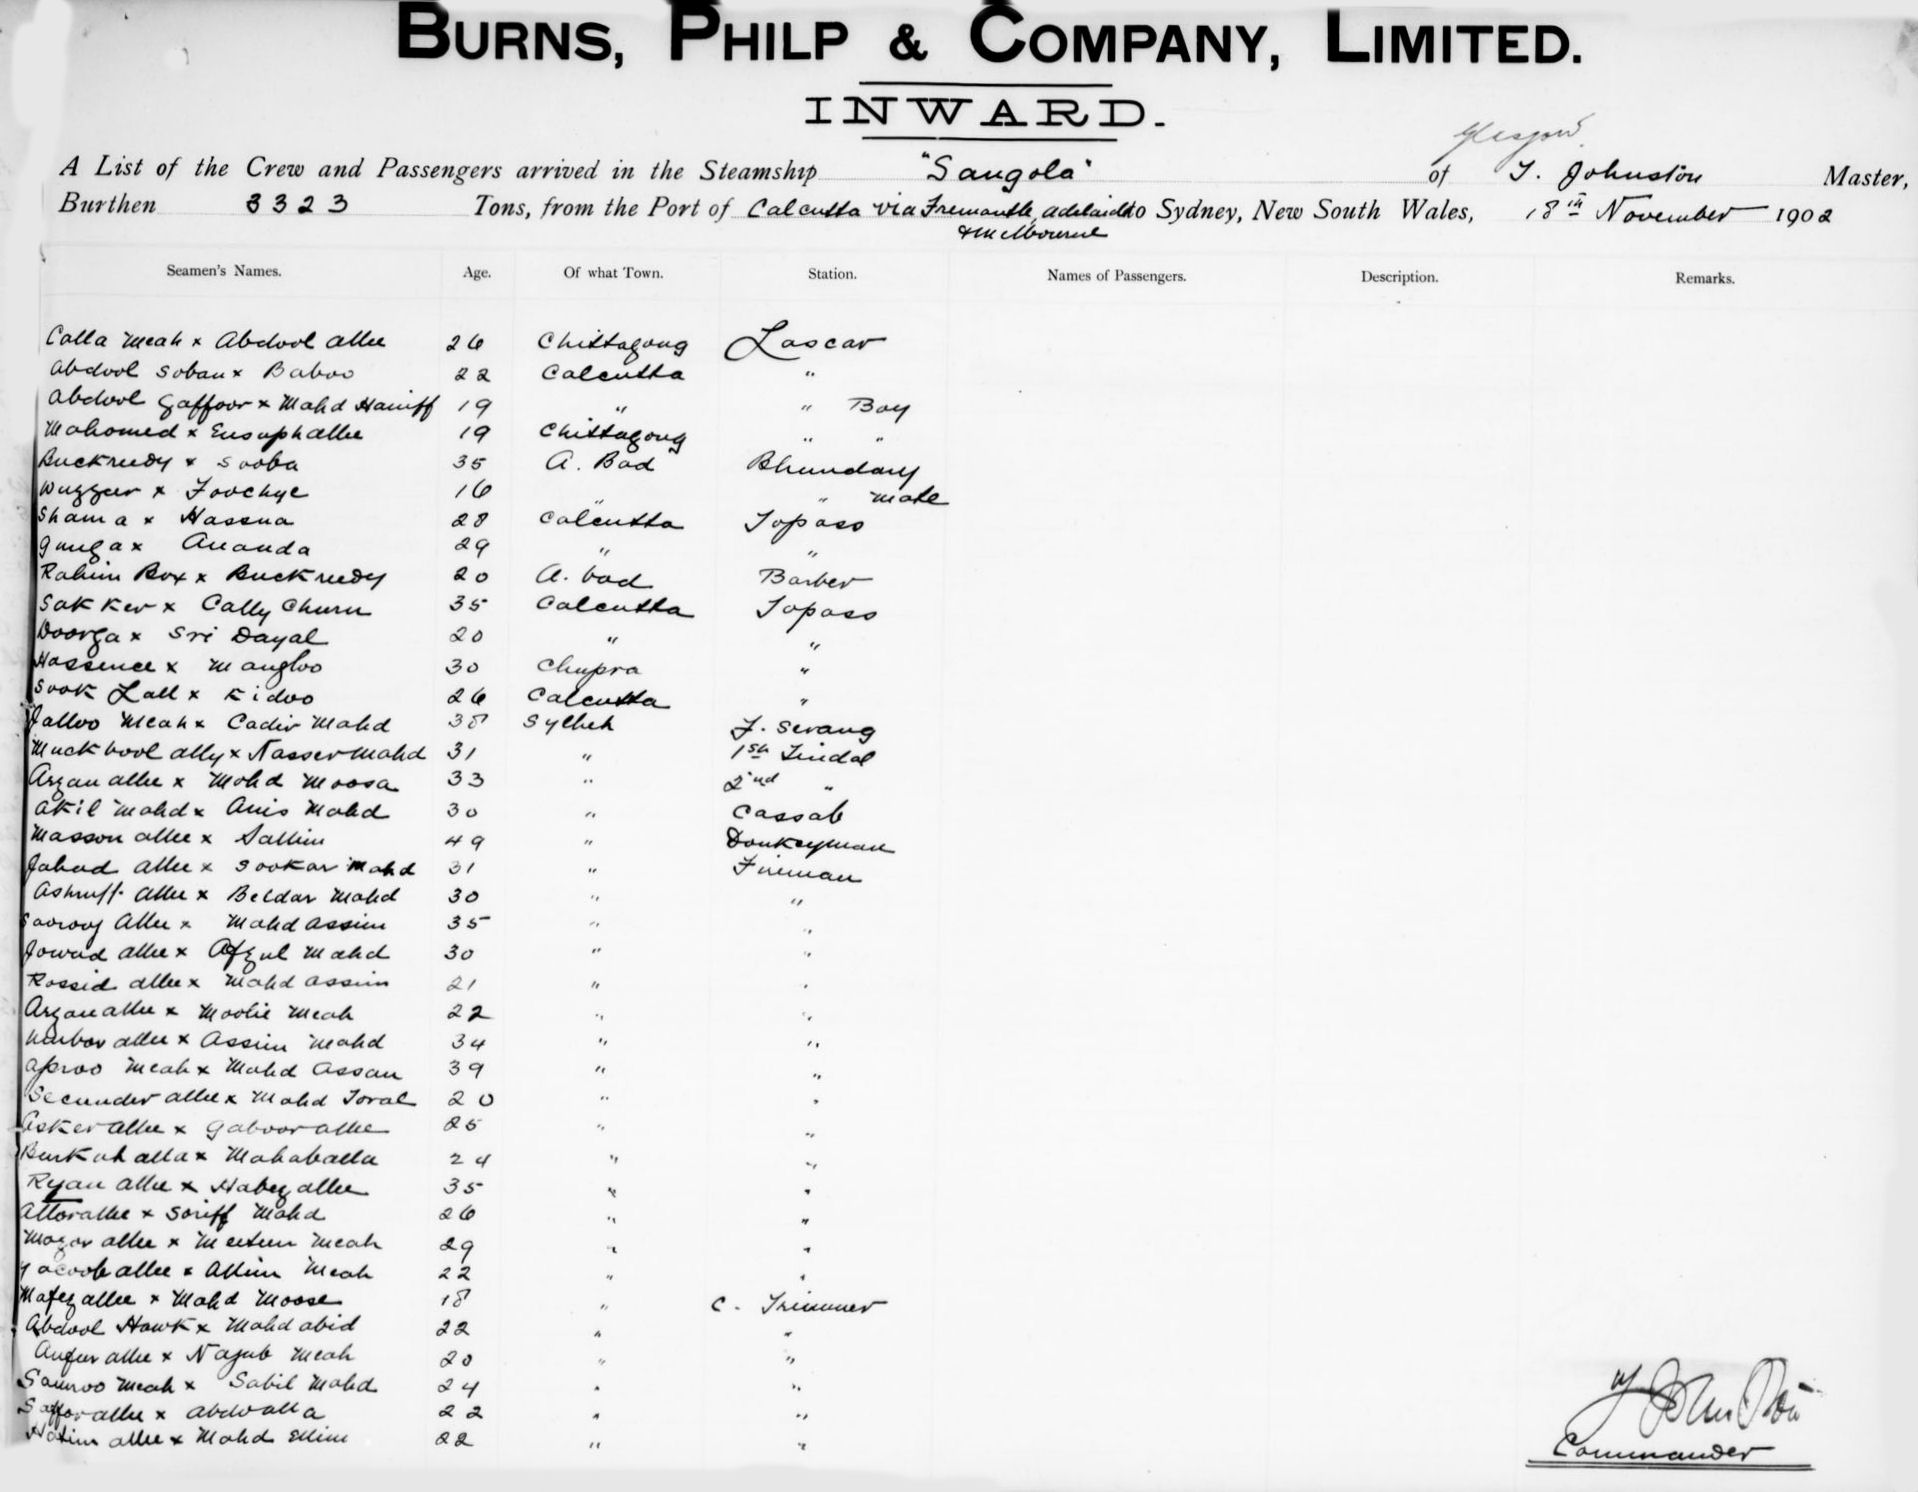 BURNS, PHILP & COMPANY, LIMITED.
INWARD.
Glasgow
A List of the Crew and Passengers arrived in the Steamship "Sangola" of T. Johnston Master,
Burthen 3323 Tons, from the Port of Calcutta via Fremantle, Adelaide to Sydney, New South Wales, 18th November 1902
& Melbourne
Seamen's Names. Age. Of what Town. Station. Names of Passengers. Description. Remarks.
Calla Meah x Abdool Allee 26 Chittagong Lascar
Abdool Soban x Baboo 22 Calcutta "
Abdool Gaffoor x Mahd Haniff 19 " " Boy
Mahomed x Eusuph allee 19 Chittagong " "
Buckreedy x Sooba 35 A. Bad Bhundary
x Foochye 16 " " mate
Shama x Hassna 28 Calcutta Topass
Gunga x Ananda 29 " "
Rahim Box x Buckreedy 20 A. bad Barber
Sakker x Cally Churn 35 Calcutta Topass
Doorga x Sri Dayal 20 " "
Hossence x Mangloo 30 Chupra "
Sook Lall x Kidoo 26 Calcutta "
Jalloo Meah x Cadir Mahd 38 Sylhet F. Serang
Muckbool ally x Nasser Mahd 31 " 1st Tindal
Arzan allee x Mohd Moosa 33 " 2nd "
Akil Mahd x Anis Mahd 30 " Cassab
Masson allee x Sallim 49 " Donkeyman
Jahad allee x Sookar Mahd 31 " Fireman
Ashruff Allee x Beldar Mahd 30 " "
Allee x Mahd Assim 35 " "
Jowad allee x Afzul Mahd 30 " "
Rossid allee x Mahd Assim 21 " "
Arzan allee x Moolie Meah 22 " "
allee x Assim Mahd 34 " "
Aproo Meah x Mahd Assan 39 " "
Secunder allee x Mahd Toral 20 " "
Asker allee x Gaboor allee 25 " "
Burkut alla x Mahaballa 24 " "
Ryan allee x Habez allee 35 " "
Attor allee x Soriff Mahd 26 " "
Mozor allee x Meah 29 " "
Yacoob allee x Allim Meah 22 " "
Mafez allee x Mahd Moose 18 " C. Trimmer
Abdool Hawk x Mahd abid 22 " "
allee x Najub Meah 20 " "
Samroo Meah x Sabil Mahd 24 " "
Saffor allee x Abdoolla 22 " "
Hatim allee x Mahd Ellim 22 " "
T Johnston
Commander